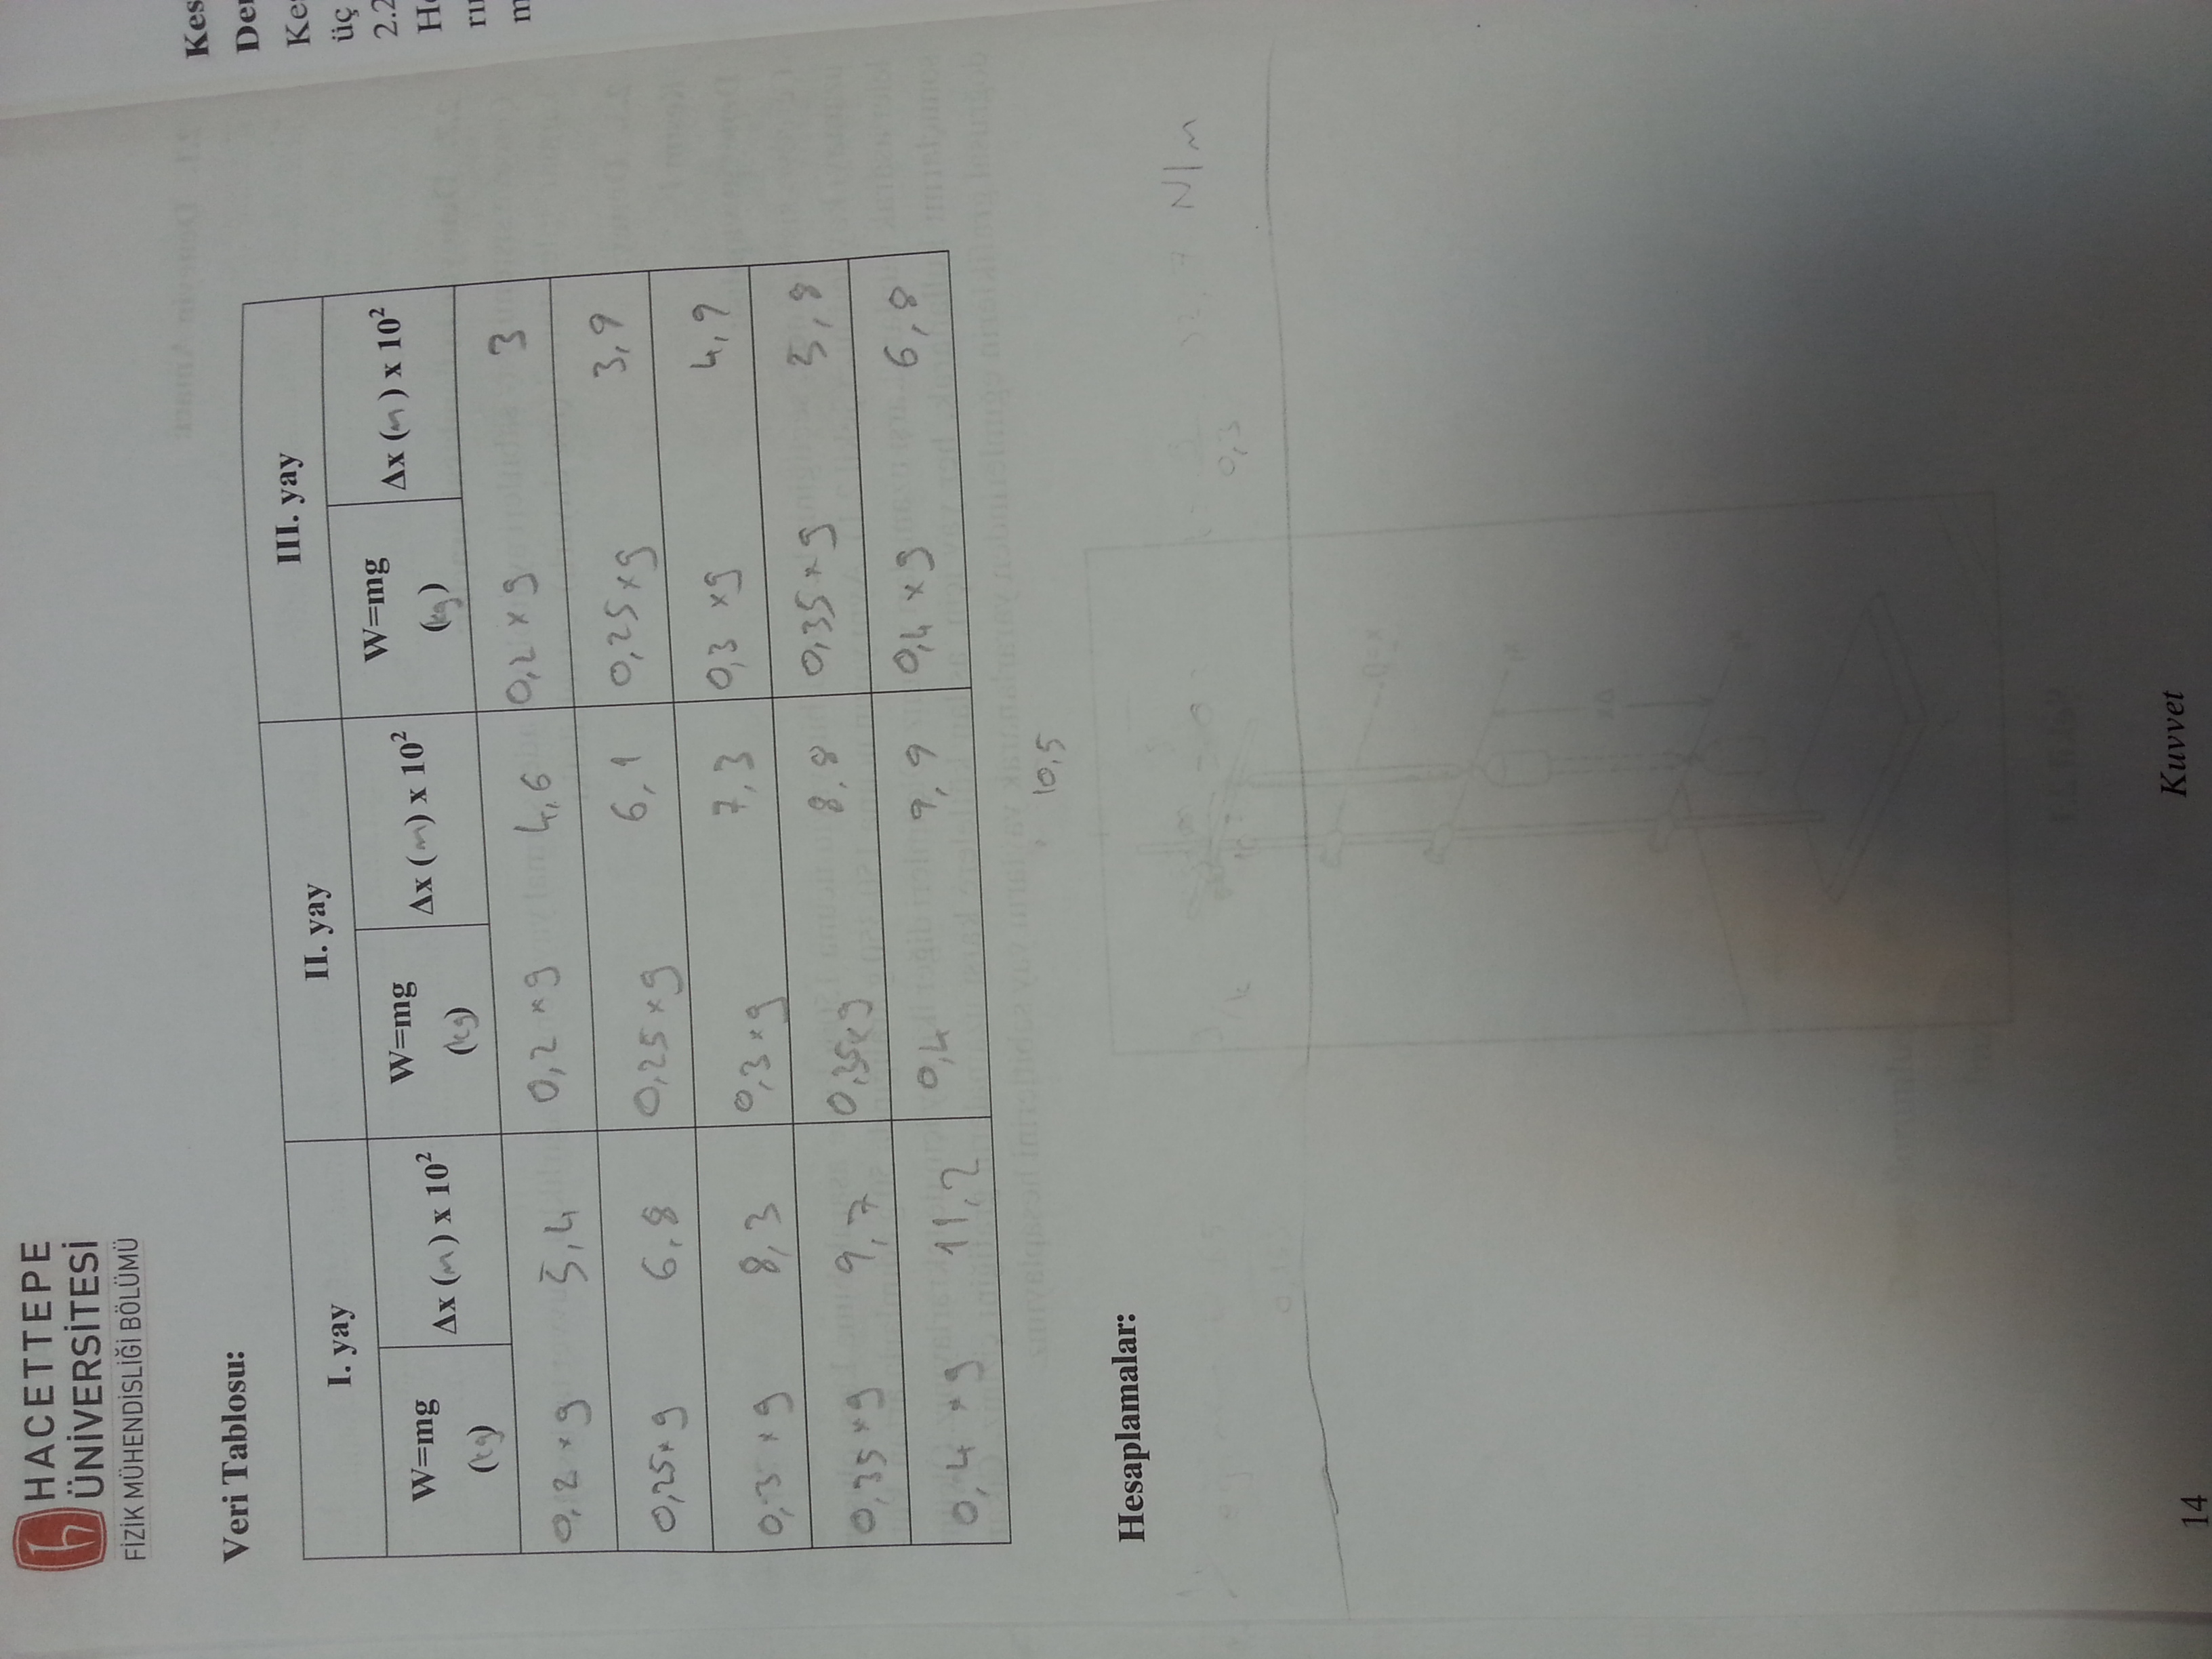 HACETTEPE
ÜNİVERSİTESİ
FİZİK MÜHENDİSLİĞİ BÖLÜMÜ
Veri Tablosu:
I. yay II. yay III. yay
W=mg (kg) Δx (m) x 10² W=mg (kg) Δx (m) x 10² W=mg (kg) Δx (m) x 10²
0,2 x g 5,4 0,2 x g 4,6 0,2 x g 3
0,25 x g 6,8 0,25 x g 6,1 0,25 x g 3,9
0,3 x g 8,3 0,3 x g 7,3 0,3 x g 4,9
0,35 x g 9,7 0,35 x g 8,8 0,35 x g 5,8
0,4 x g 11,2 0,4 9,9 0,4 x g 6,8
10,5
Hesaplamalar:
N/m
0,3
14
Kuvvet
Kes
Ke
üç
2.2